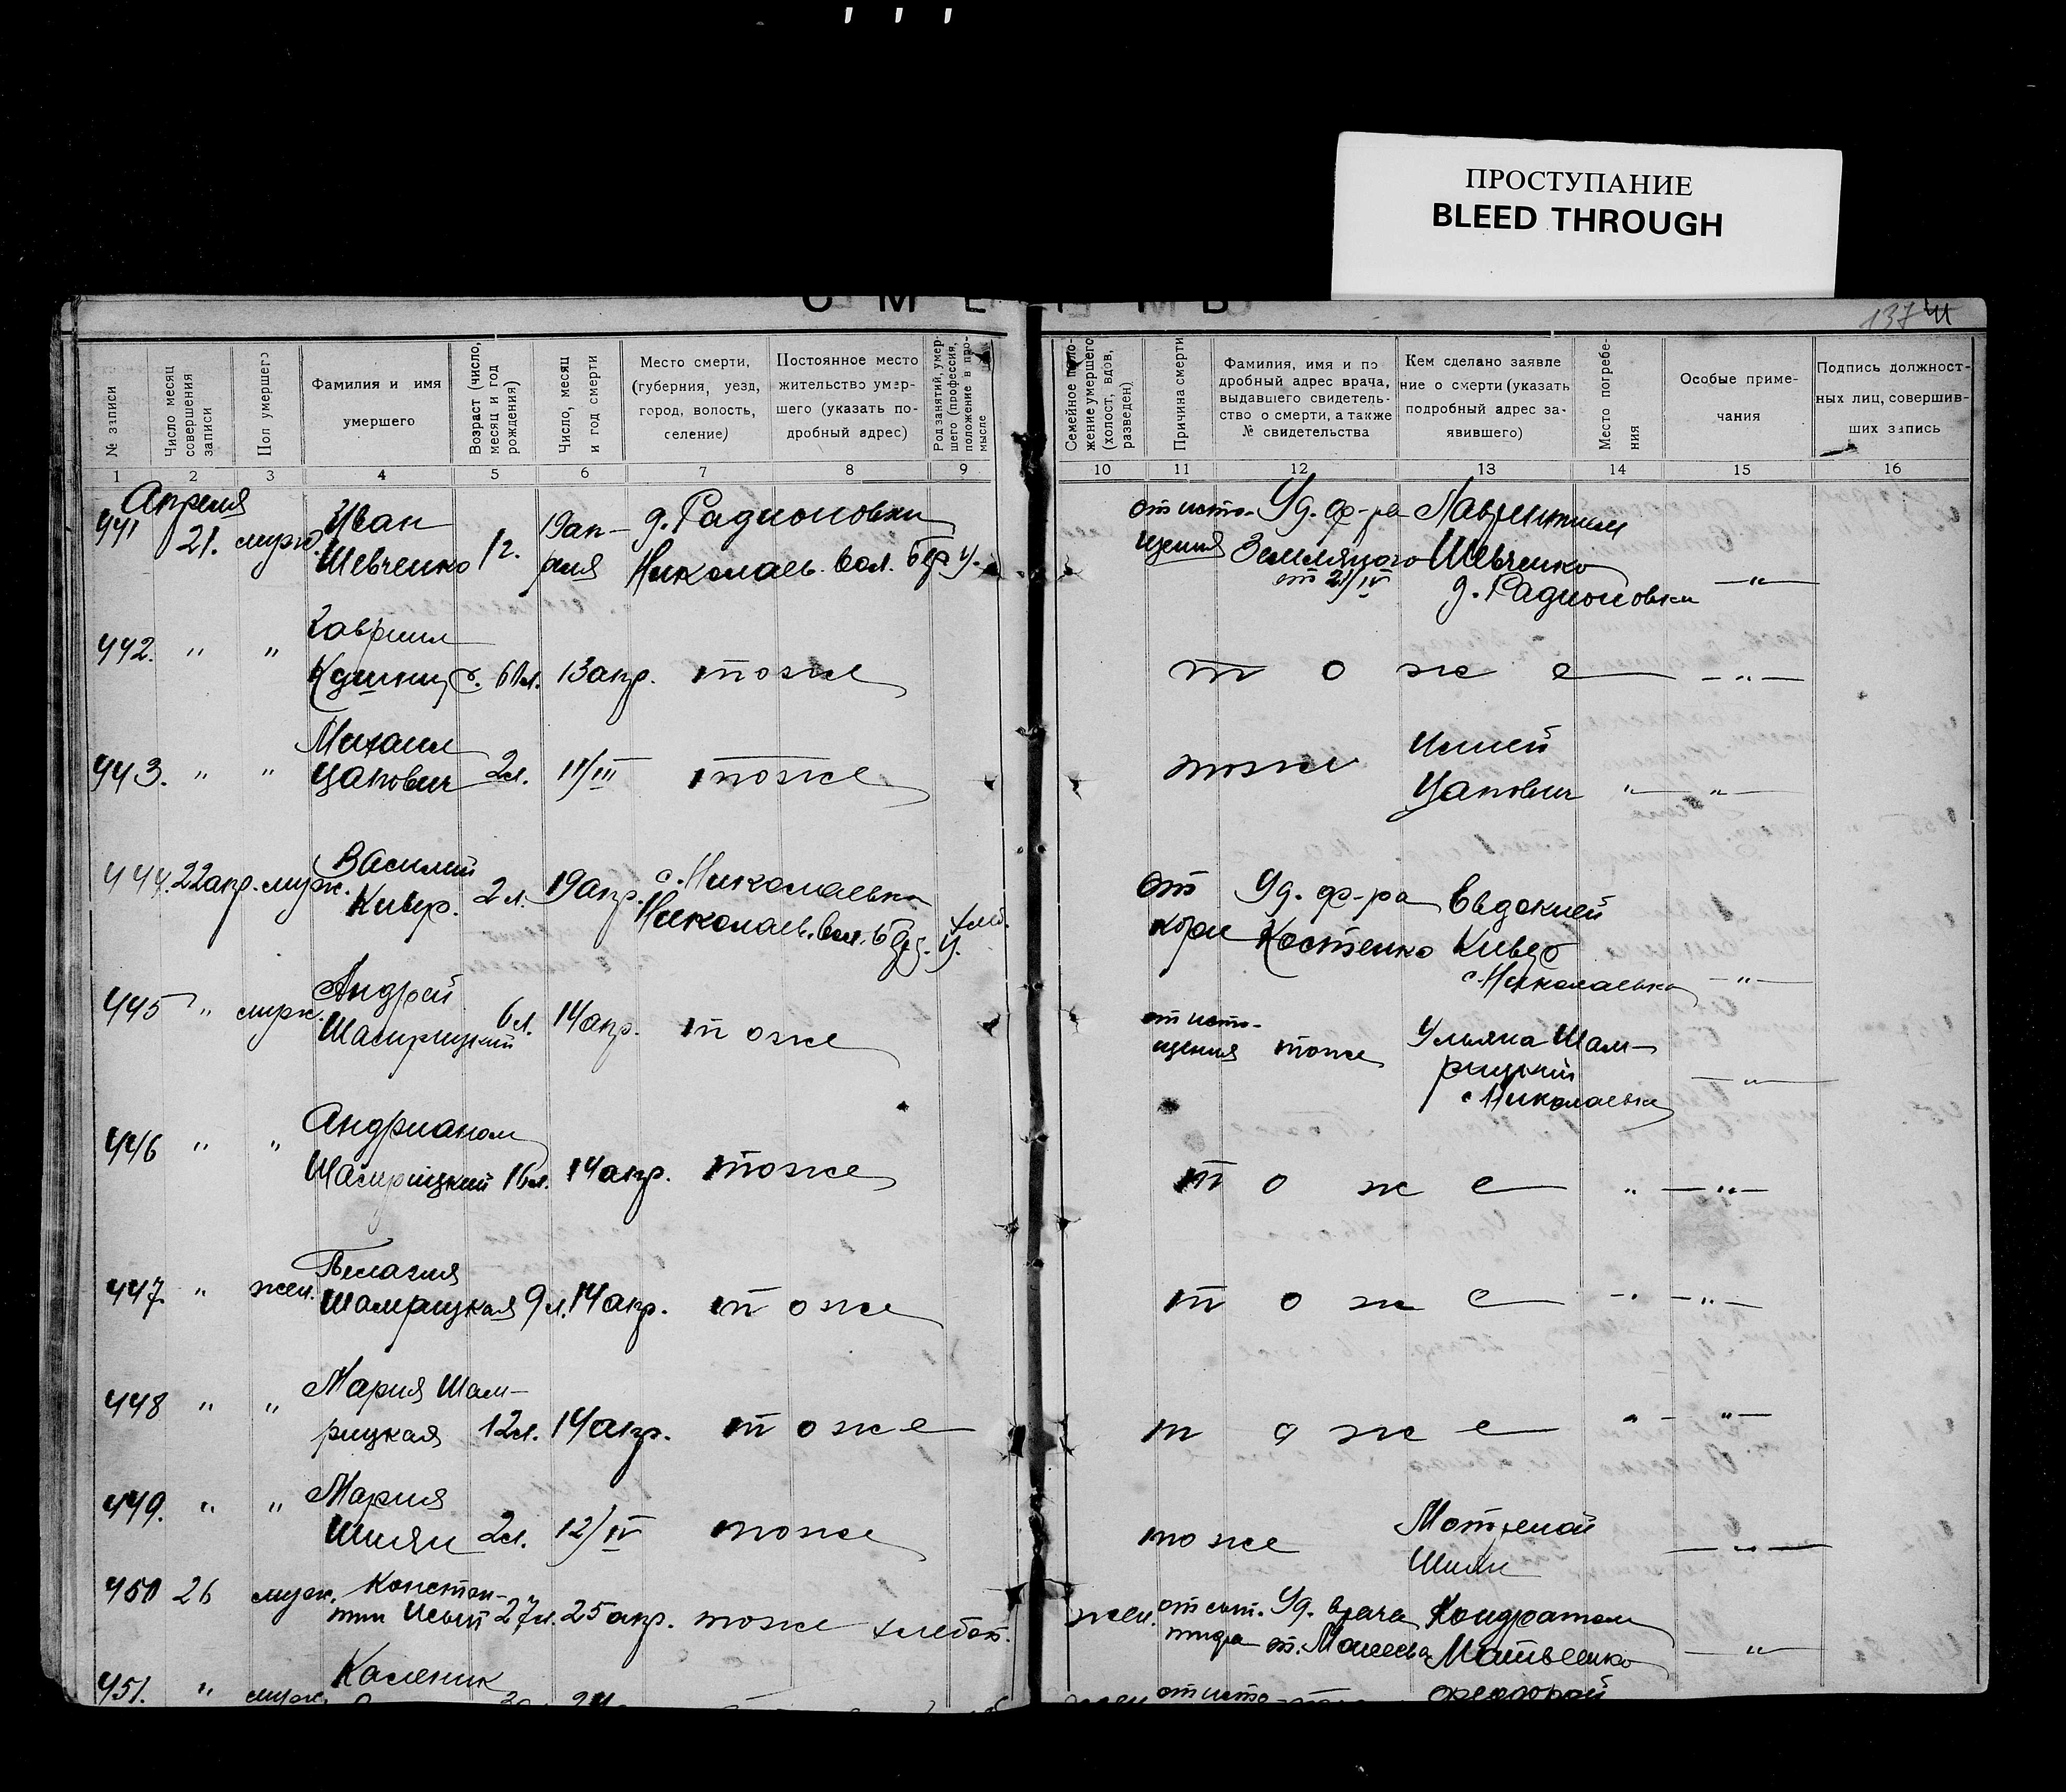 ПРОСТУПАНИЕ
BLEED THROUGH
137
№ записи
Число месяц совершения записи
Пол умершего
Фамилия и имя умершего
Возраст (число, месяц и год рождения)
Число, месяц и год смерти
Место смерти, (губерния, уезд, город, волость, селение)
Постоянное место жительство умершего (указать подробный адрес)
Род занятий, умершего (профессия, положение в промысле
Семейное положение умершего (холост, вдов, разведен)
Причина смерти
Фамилия, имя и подробный адрес врача, выдавшего свидетельство о смерти, а также № свидетельства
Кем сделано заявление о смерти (указать подробный адрес заявившего)
Место погребения
Особые примечания
Подпись должностных лиц, совершивших запись
1 2 3 4 5 6 7 8 9 10 11 12 13 14 15 16
Апреля
441 21. муж. Иван Шевченко 1 г. 19 апреля д. Радионовки Николаев. вол. у. от истощения Уд. ф-ра Земляного от 21/IV Лаврентием Шевченко д. Радионовки —"—
442. " " Гавриил 13 апр. тоже тоже —"—
443. " " Михаил Цапович 2 л. 11/III тоже тоже Цапович " —"—
444. 22 апр. муж. Василий Кивер. 2 л. 19 апр. с. Николаевка Николаев. вол. у. хлеб. от кори Уд. ф-ра Костенко Евдокией Кивер с. Николаевка —"—
445 " муж. Андрей Шамрицкий 6 л. 14 апр. тоже от истощения тоже Ульяна Шамрицкий с. Николаевка —"—
446 " " Андрианом Шамрицкий 16 л. 14 апр. тоже тоже " —"—
447. " жен. Пелагия Шамрицкая 9 л. 14 апр. тоже тоже —"—
448 " " Мария Шамрицкая 12 л. 14 апр. тоже тоже " —"—
449. " " Мария Шиян 2 л. 12/IV тоже тоже Мотреной Шиян —"—
450 26 муж. Константин 27 л. 25 апр. тоже хлебоп. жен. от сып. тифа Уд. врача от. Моисеева Кондратом Матвеенко —"—
451. " муж. Каленик от исто Феодорой